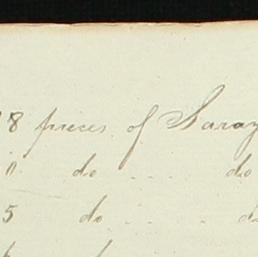 8 pieces of Saray
" do do
5 do d
do